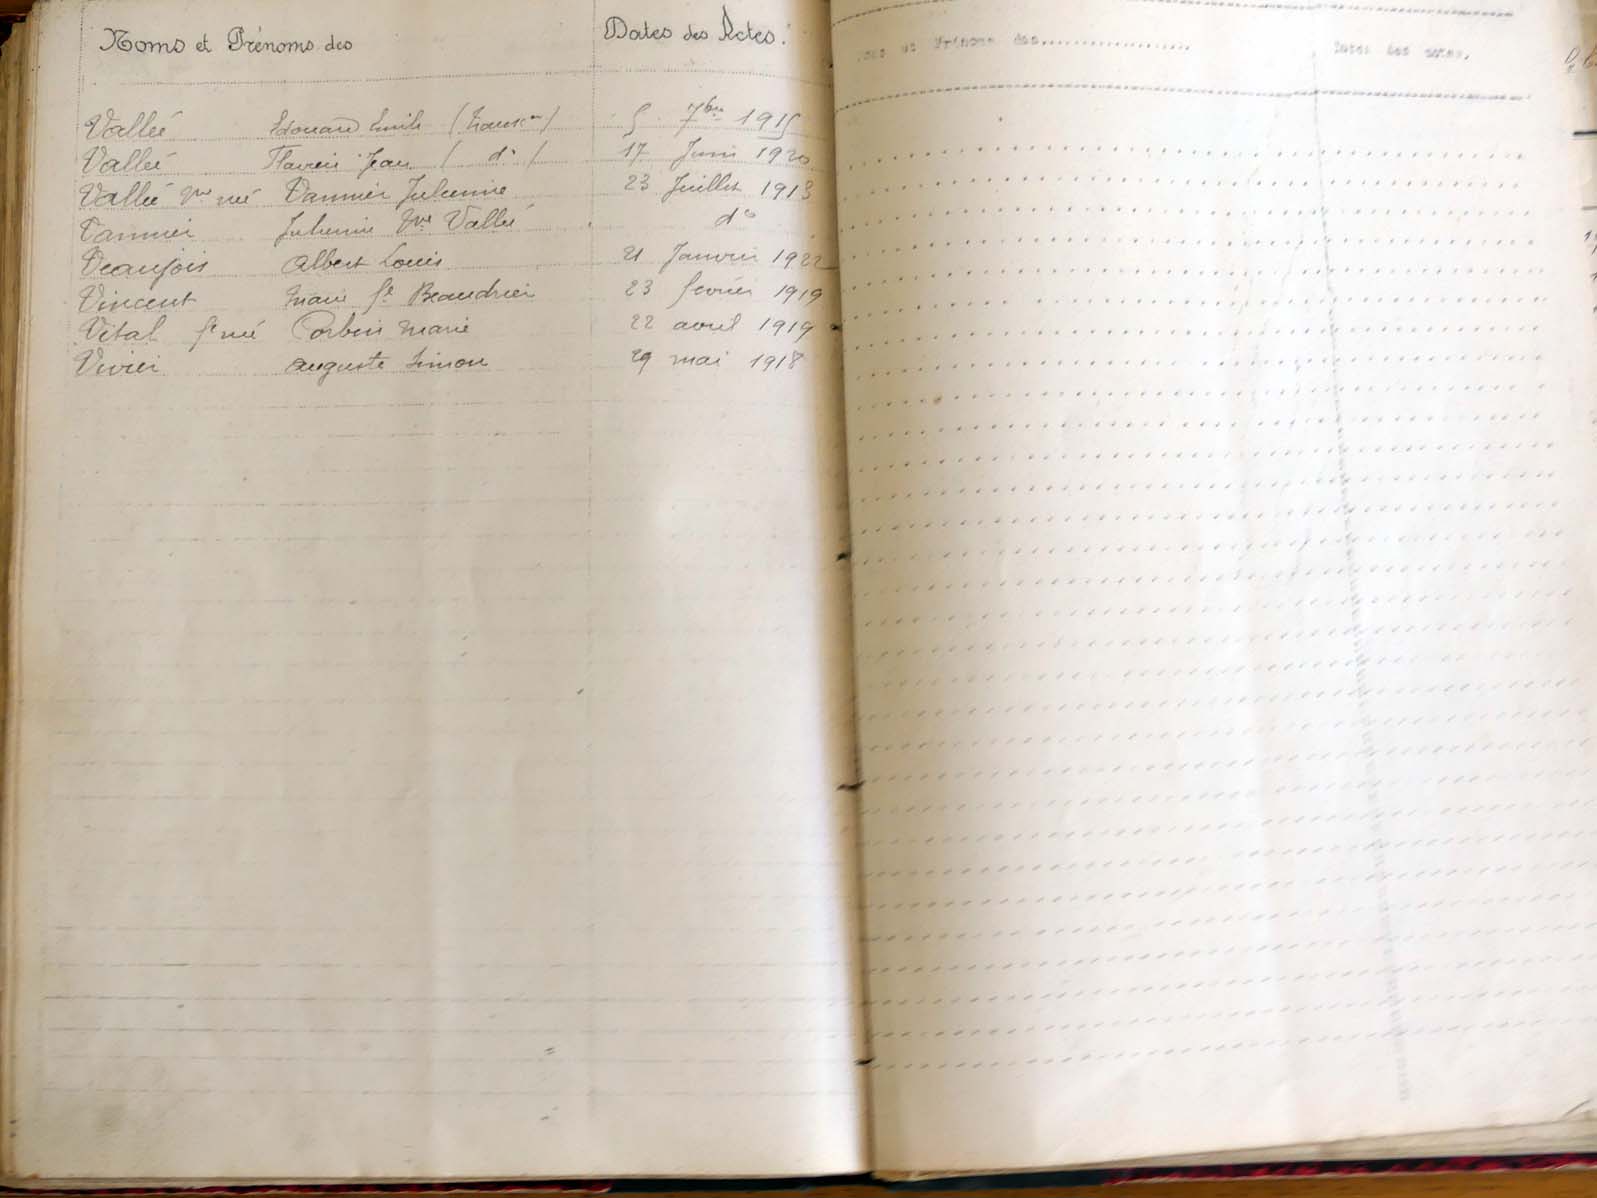 Noms et Prénoms des
Dates des Actes.
Vallée Edouard Emile (Transon) 5 7bre 1915
Vallée Flavien Jean ( do ) 17 Juin 1920
Vallée Vve née Vannier Julienne 23 Juillet 1913
Vannier Julienne Vve Vallée do
Veaugois Albert Louis 21 Janvier 1922
Vincent Marie fe Beaudrier 23 février 1919
Vital fe née Corbin Marie 22 avril 1919
Vivier Auguste Simon 29 mai 1918
et Prénoms des..................
Dates des actes.